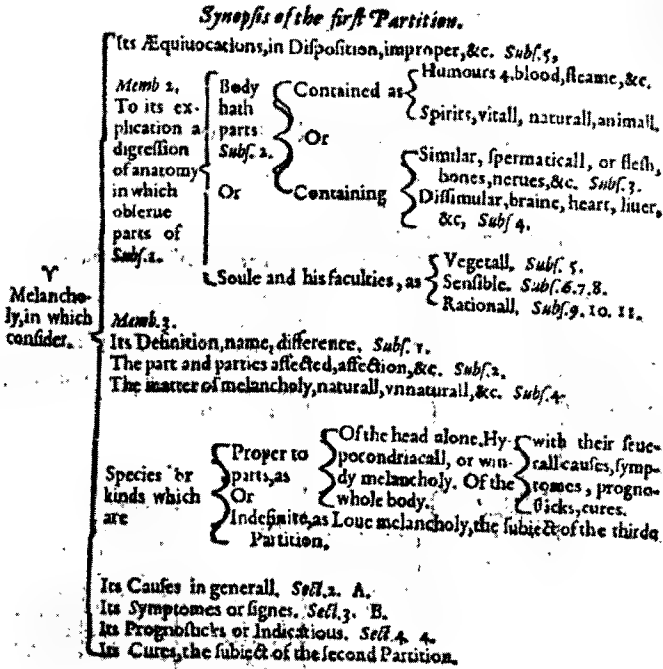 Synopſis of the firſt Partition.
Its Æquiuocations, in Diſpoſition, improper, &c. Subſ. 5,
Memb 2.
To its ex-
plication a
digreſſion
of anatomy
in which
obſerue
parts of
Subſ. 1.
Body
hath
parts
Subſ. 2.
Or
Contained as
Humours 4. blood, fleame, &c.
Spirits, vitall, naturall, animall.
Or
Containing
Similar, ſpermaticall, or fleſh,
bones, nerues, &c. Subſ. 3.
Diſſimular, braine, heart, liuer,
&c, Subſ 4.
Soule and his faculties, as
Vegetall. Subſ. 5.
Senſible. Subſ. 6. 7. 8.
Rationall. Subſ. 9. 10. 11.
♈
Melancho-
ly, in which
conſider.
Memb. 3.
Its Definition, name, difference. Subſ. 1.
The part and parties affected, affection, &c. Subſ. 2.
The matter of melancholy, naturall, vnnaturall, &c. Subſ. 4.
Species or
kinds which
are
Proper to
parts, as
Or
Indefinite, as Loue melancholy, the ſubiect of the third
Partition.
Of the head alone, Hy-
pocondriacall, or win-
dy melancholy. Of the
whole body.
with their ſeue-
rall cauſes, ſymp-
tomes, progno-
ſticks, cures.
Its Cauſes in generall. Sect. 2. A.
Its Symptomes or ſignes. Sect. 3. B.
Its Prognoſticks or Indications. Sect. 4. 4.
Its Cures, the ſubiect of the ſecond Partition.